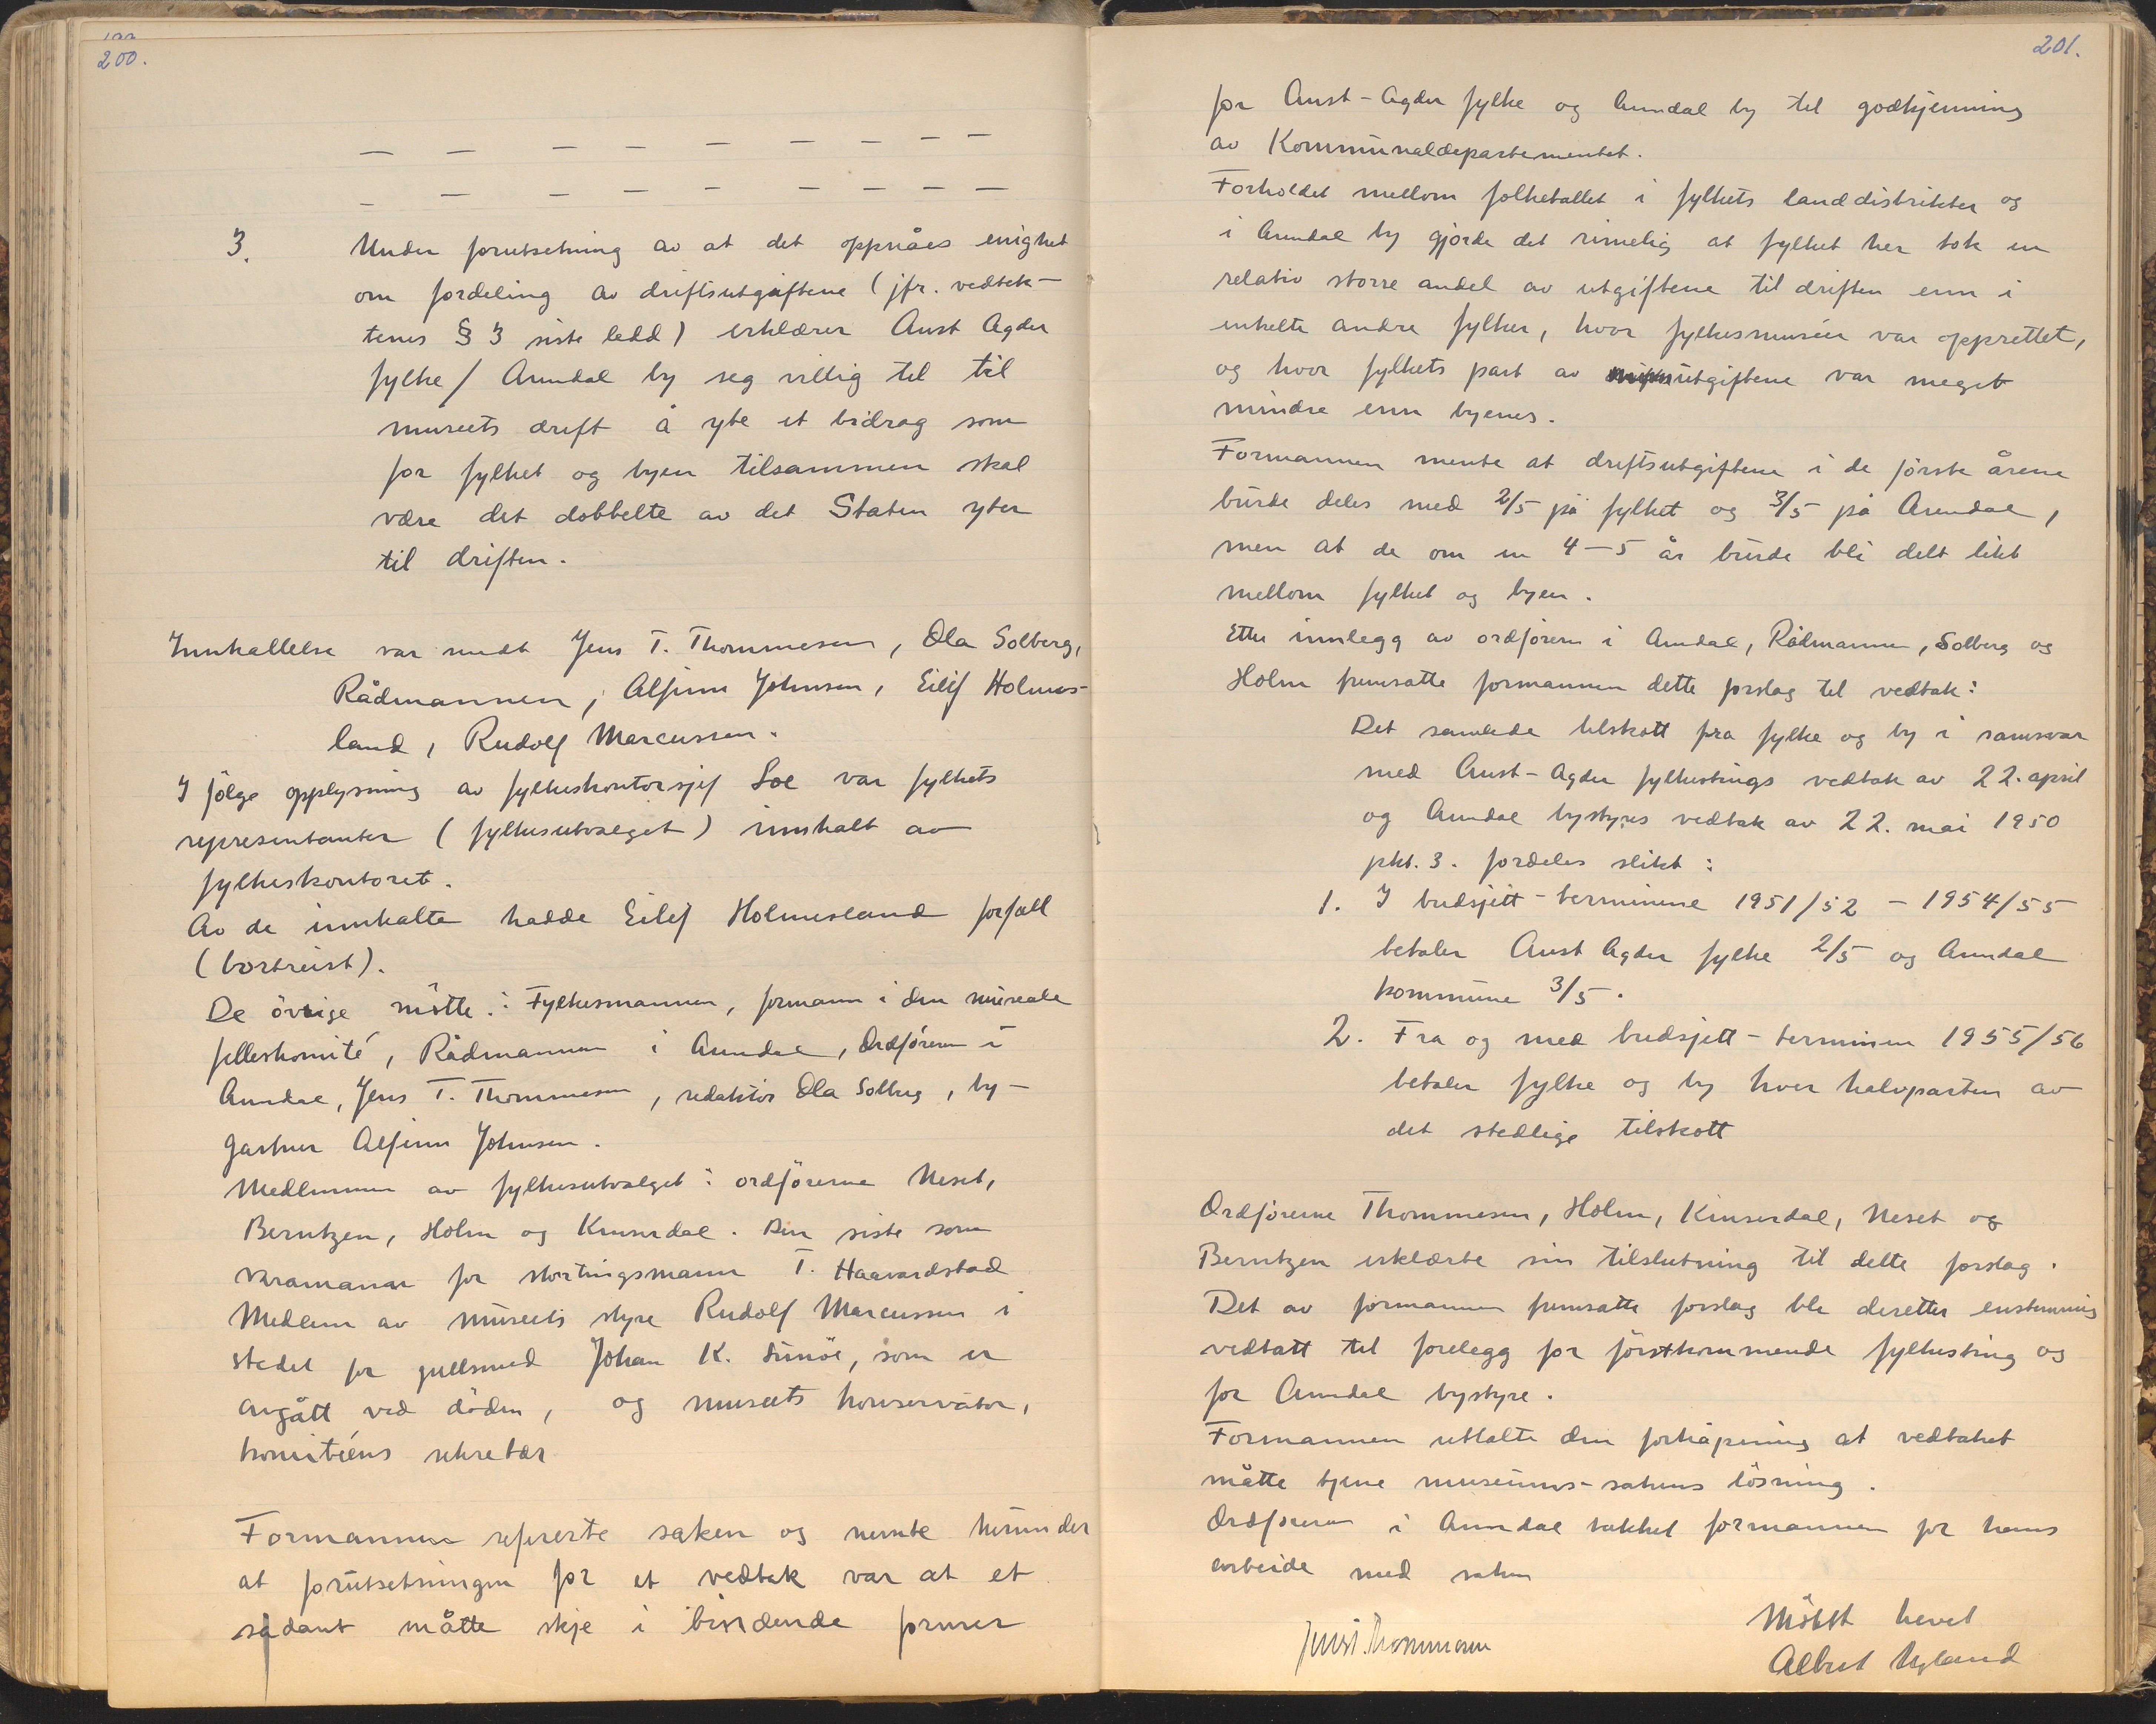 200.
— — — — — — — — —
— — — — — — — — —
3. Under forutsetning av at det oppnåes enighet
om fordeling av driftsutgiftene (jfr. vedtek-
tenes § 3 siste ledd) erklærer Aust Agder
fylke / Arendal by seg villig til til
museets drift å yte et bidrag som
for fylket og byen tilsammen skal
være det dobbelte av det Staten yter
til driften.
Innkallelse var sendt Jens T. Thommesen, Ola Solberg,
Rådmannen, Alfinn Johnsen, Eilif Holmes-
land, Rudolf Marcussen.
I følge opplysning av fylkeskontorsjef Loe var fylkets
representanter (fylkesutvalget) innkalt av
fylkeskontoret.
Av de innkalte hadde Eilif Holmesland forfall
(bortreist).
De övrige mötte: Fylkesmannen, formann i den museale
felleskomité, Rådmannen i Arendal, Ordföreren i
Arendal, Jens T. Thommesen, redaktör Ola Solberg, by-
gartner Alfinn Johnsen.
Medlemmer av fylkesutvalget: ordförerne Neset,
Berntzen, Holm og Kinserdal. Den siste som
varamann for stortingsmann T. Haavardstad
Medlem av museets styre Rudolf Marcussen i
stedet for gullsmed Johan K. , som er
avgått ved döden, og museets konservator,
komitéens sekretær
Formannen refererte saken og nevnte herunder
at forutsetningen for et vedtak var at et
sådant måtte skje i bindende former
201.
for Aust-Agder fylke og Arendal by til godkjenning
av Kommunaldepartementet.
Forholdet mellom folketallet i fylkets landdistrikter og
i Arendal by gjorde det rimelig at fylket her tok en
relativ större andel av utgiftene til driften enn i
enkelte andre fylker, hvor fylkesmuséer var opprettet,
og hvor fylkets part av utgiftene var meget
mindre enn byenes.
Formannen mente at driftsutgiftene i de förste årene
burde deles med 2/5 på fylket og 3/5 på Arendal,
men at de om en 4-5 år burde bli delt likt
mellom fylket og byen.
Etter innlegg av ordföreren i Arendal, Rådmannen, Solberg og
Holm fremsatte formannen dette forslag til vedtak:
Det samlede tilskott fra fylke og by i samsvar
med Aust-Agder fylkestings vedtak av 22. april
og Arendal bystyres vedtak av 22. mai 1950
pkt. 3. fordeles slikt:
1. I budsjett-terminene 1951/52 - 1954/55
betaler Aust Agder fylke 2/5 og Arendal
kommune 3/5.
2. Fra og med budsjett-terminen 1955/56
betaler fylke og by hver halvparten av
det stedlige tilskott
Ordförerne Thommesen, Holm, Kinserdal, Neset og
Berntzen erklærte sin tilslutning til dette forslag.
Det av formannen fremsatte forslag ble deretter enstemmig
vedtatt til forelegg for förstkommende fylkesting og
for Arendal bystyre.
Formannen uttalte den forhåpning at vedtaket
måtte tjene museums-sakens lösning.
Ordföreren i Arendal takket formannen for hans
arbeide med saken
Mötet hevet
Jens T. Thommesen
Albert Ugland